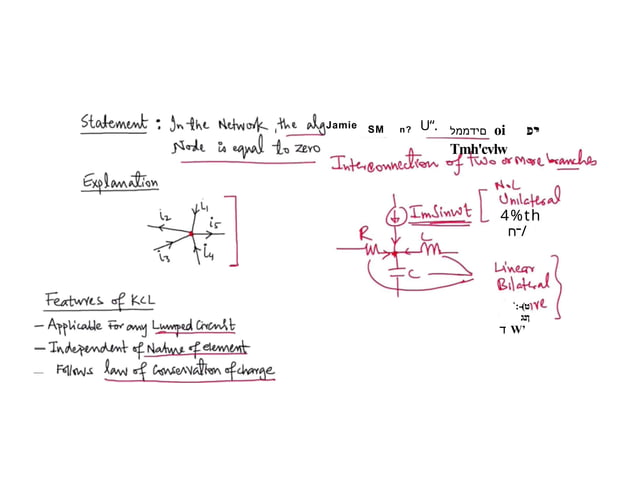 Statement : In the Network, the alg Jamie SM n? U". סידממל oi פי
Node is equal to zero Tmh'cvlw
Interconnection of two or more branches
Explanation
i1
i2
i5
i3
i4
N.L
Unilateral
ImSinwt
4%th
n-/
R
L
C
Linear
Bilateral
ive
ד W'
Features of KCL
- Applicable For any Lumped Circuit
- Independent of Nature of element
- Follows law of Conservation of charge